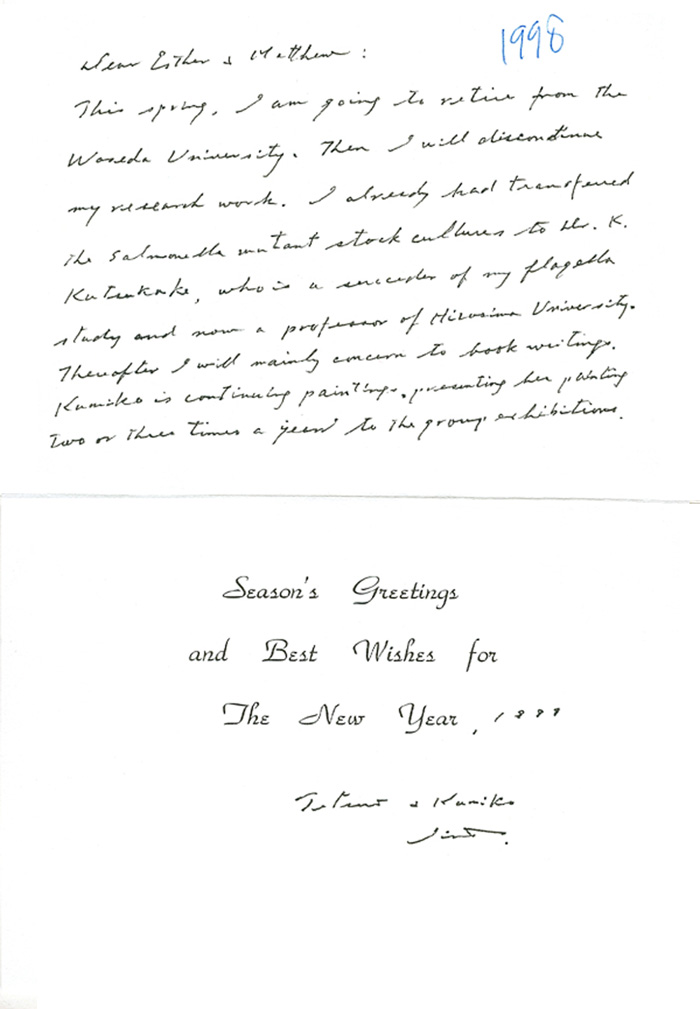 1998
Dear Esther & Matthew:
This spring, I am going to retire from the
Waseda University. Then I will discontinue
my research work. I already had transferred
the Salmonella mutant stock cultures to Dr. K.
Kutsukake, who is a succeder of my flagella
study and now a professor of Hirosima University.
Thereafter I will mainly concern to book writings.
Kumiko is continuing paintings, presenting her painting
two or three times a year to the group exhibitions.
Season's Greetings
and Best Wishes for
The New Year, 1999
Tetsuo & Kumiko
Iino.